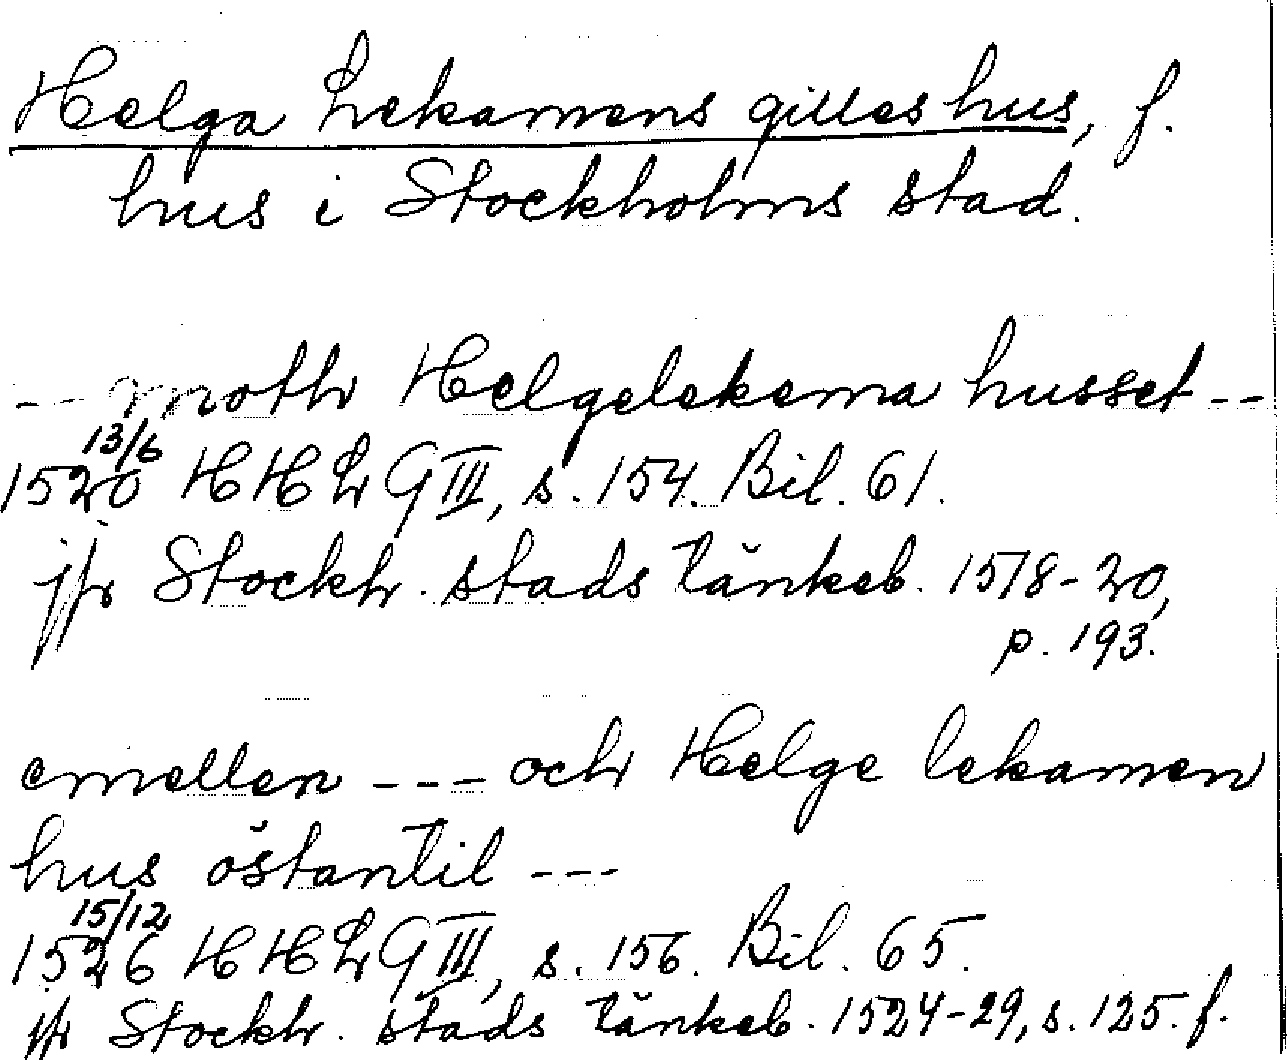 Helga Lekamens gilles hus, f.
hus i Stockholms stad.
-- moth Helgelekema husset --
13/6
1520 HHLG III, s. 154. Bil. 61.
jfr Stockh. stads tänkeb. 1518-20,
p. 193.
emellen --- och Helge lekamen
hus östantil ---
15/12
1526 HHLG III, s. 156. Bil. 65.
jfr Stockh. stads tänkeb. 1524-29, s. 125. f.